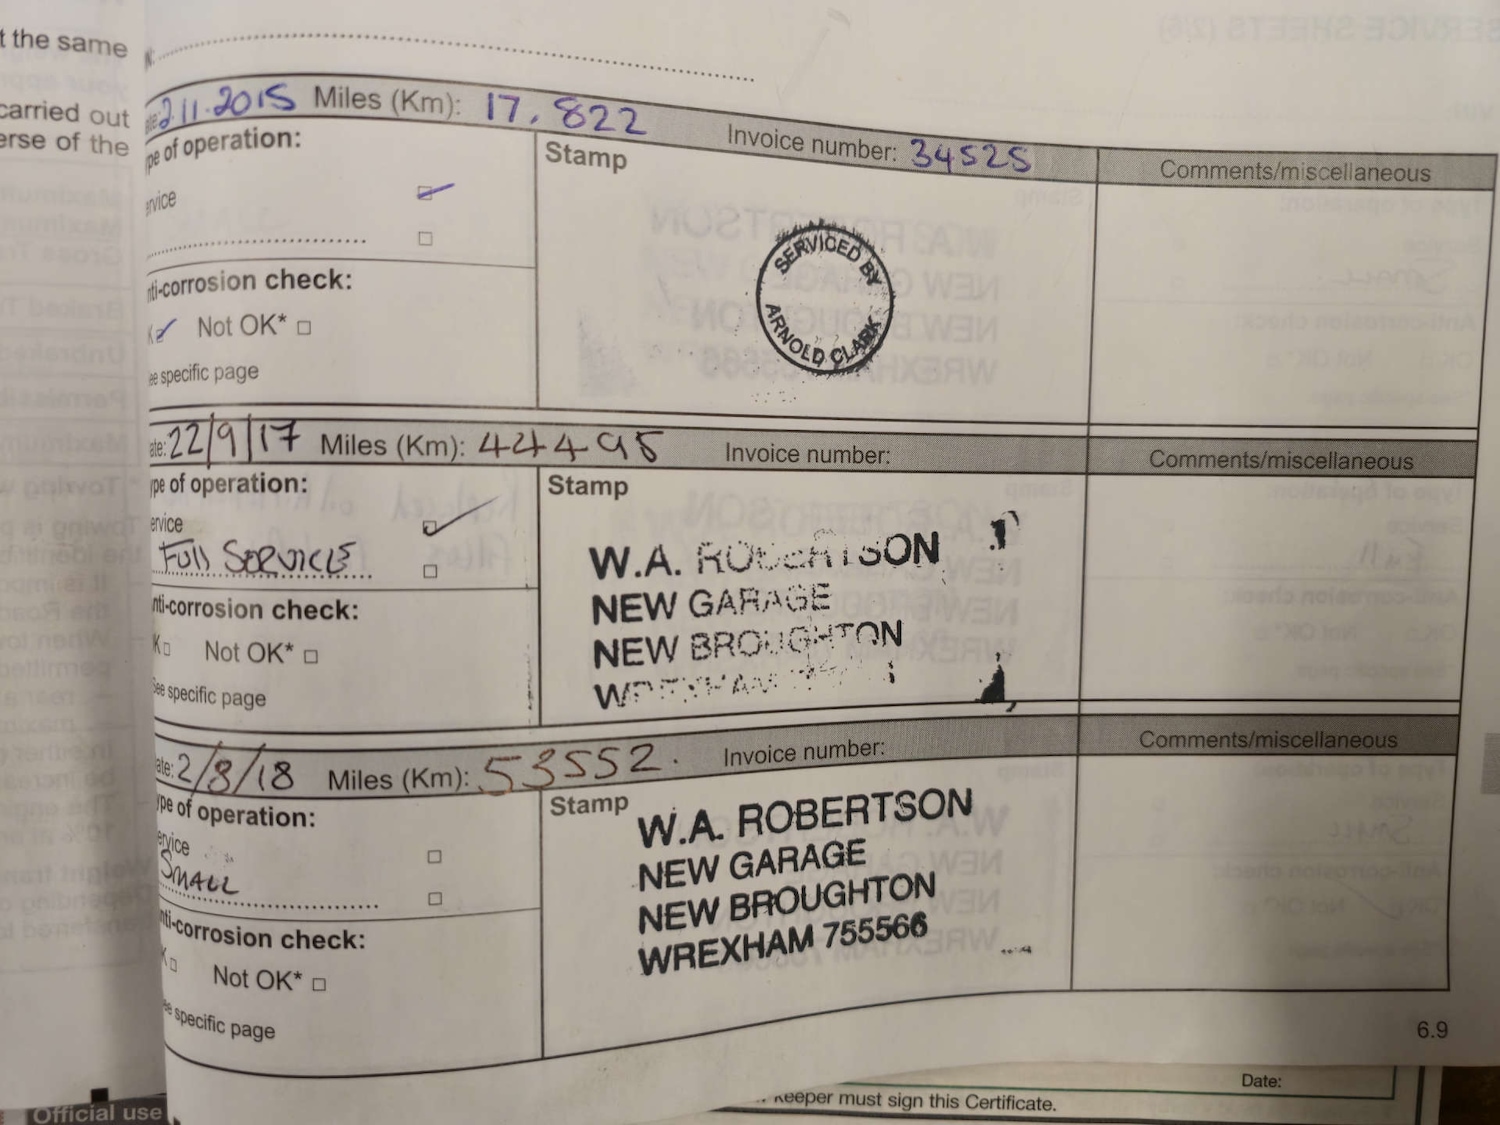 t the same
carried out
erse of the
2.11.2015 Miles (Km): 17,822 Invoice number: 34525 Comments/miscellaneous
pe of operation:
Stamp
rvice
SERVICED BY
ARNOLD CLARK
nti-corrosion check:
K Not OK*
ee specific page
ate: 22/9/17 Miles (Km): 44495 Invoice number: Comments/miscellaneous
ype of operation:
Stamp
ervice
Full SERVICE
W.A. ROBERTSON
NEW GARAGE
NEW BROUGHTON
WREXHAM
nti-corrosion check:
K Not OK*
See specific page
ate: 2/8/18 Miles (Km): 53552. Invoice number: Comments/miscellaneous
ype of operation:
Stamp
ervice
SMALL
W.A. ROBERTSON
NEW GARAGE
NEW BROUGHTON
WREXHAM 755566
nti-corrosion check:
K Not OK*
ee specific page
6.9
Official use
Date:
keeper must sign this Certificate.